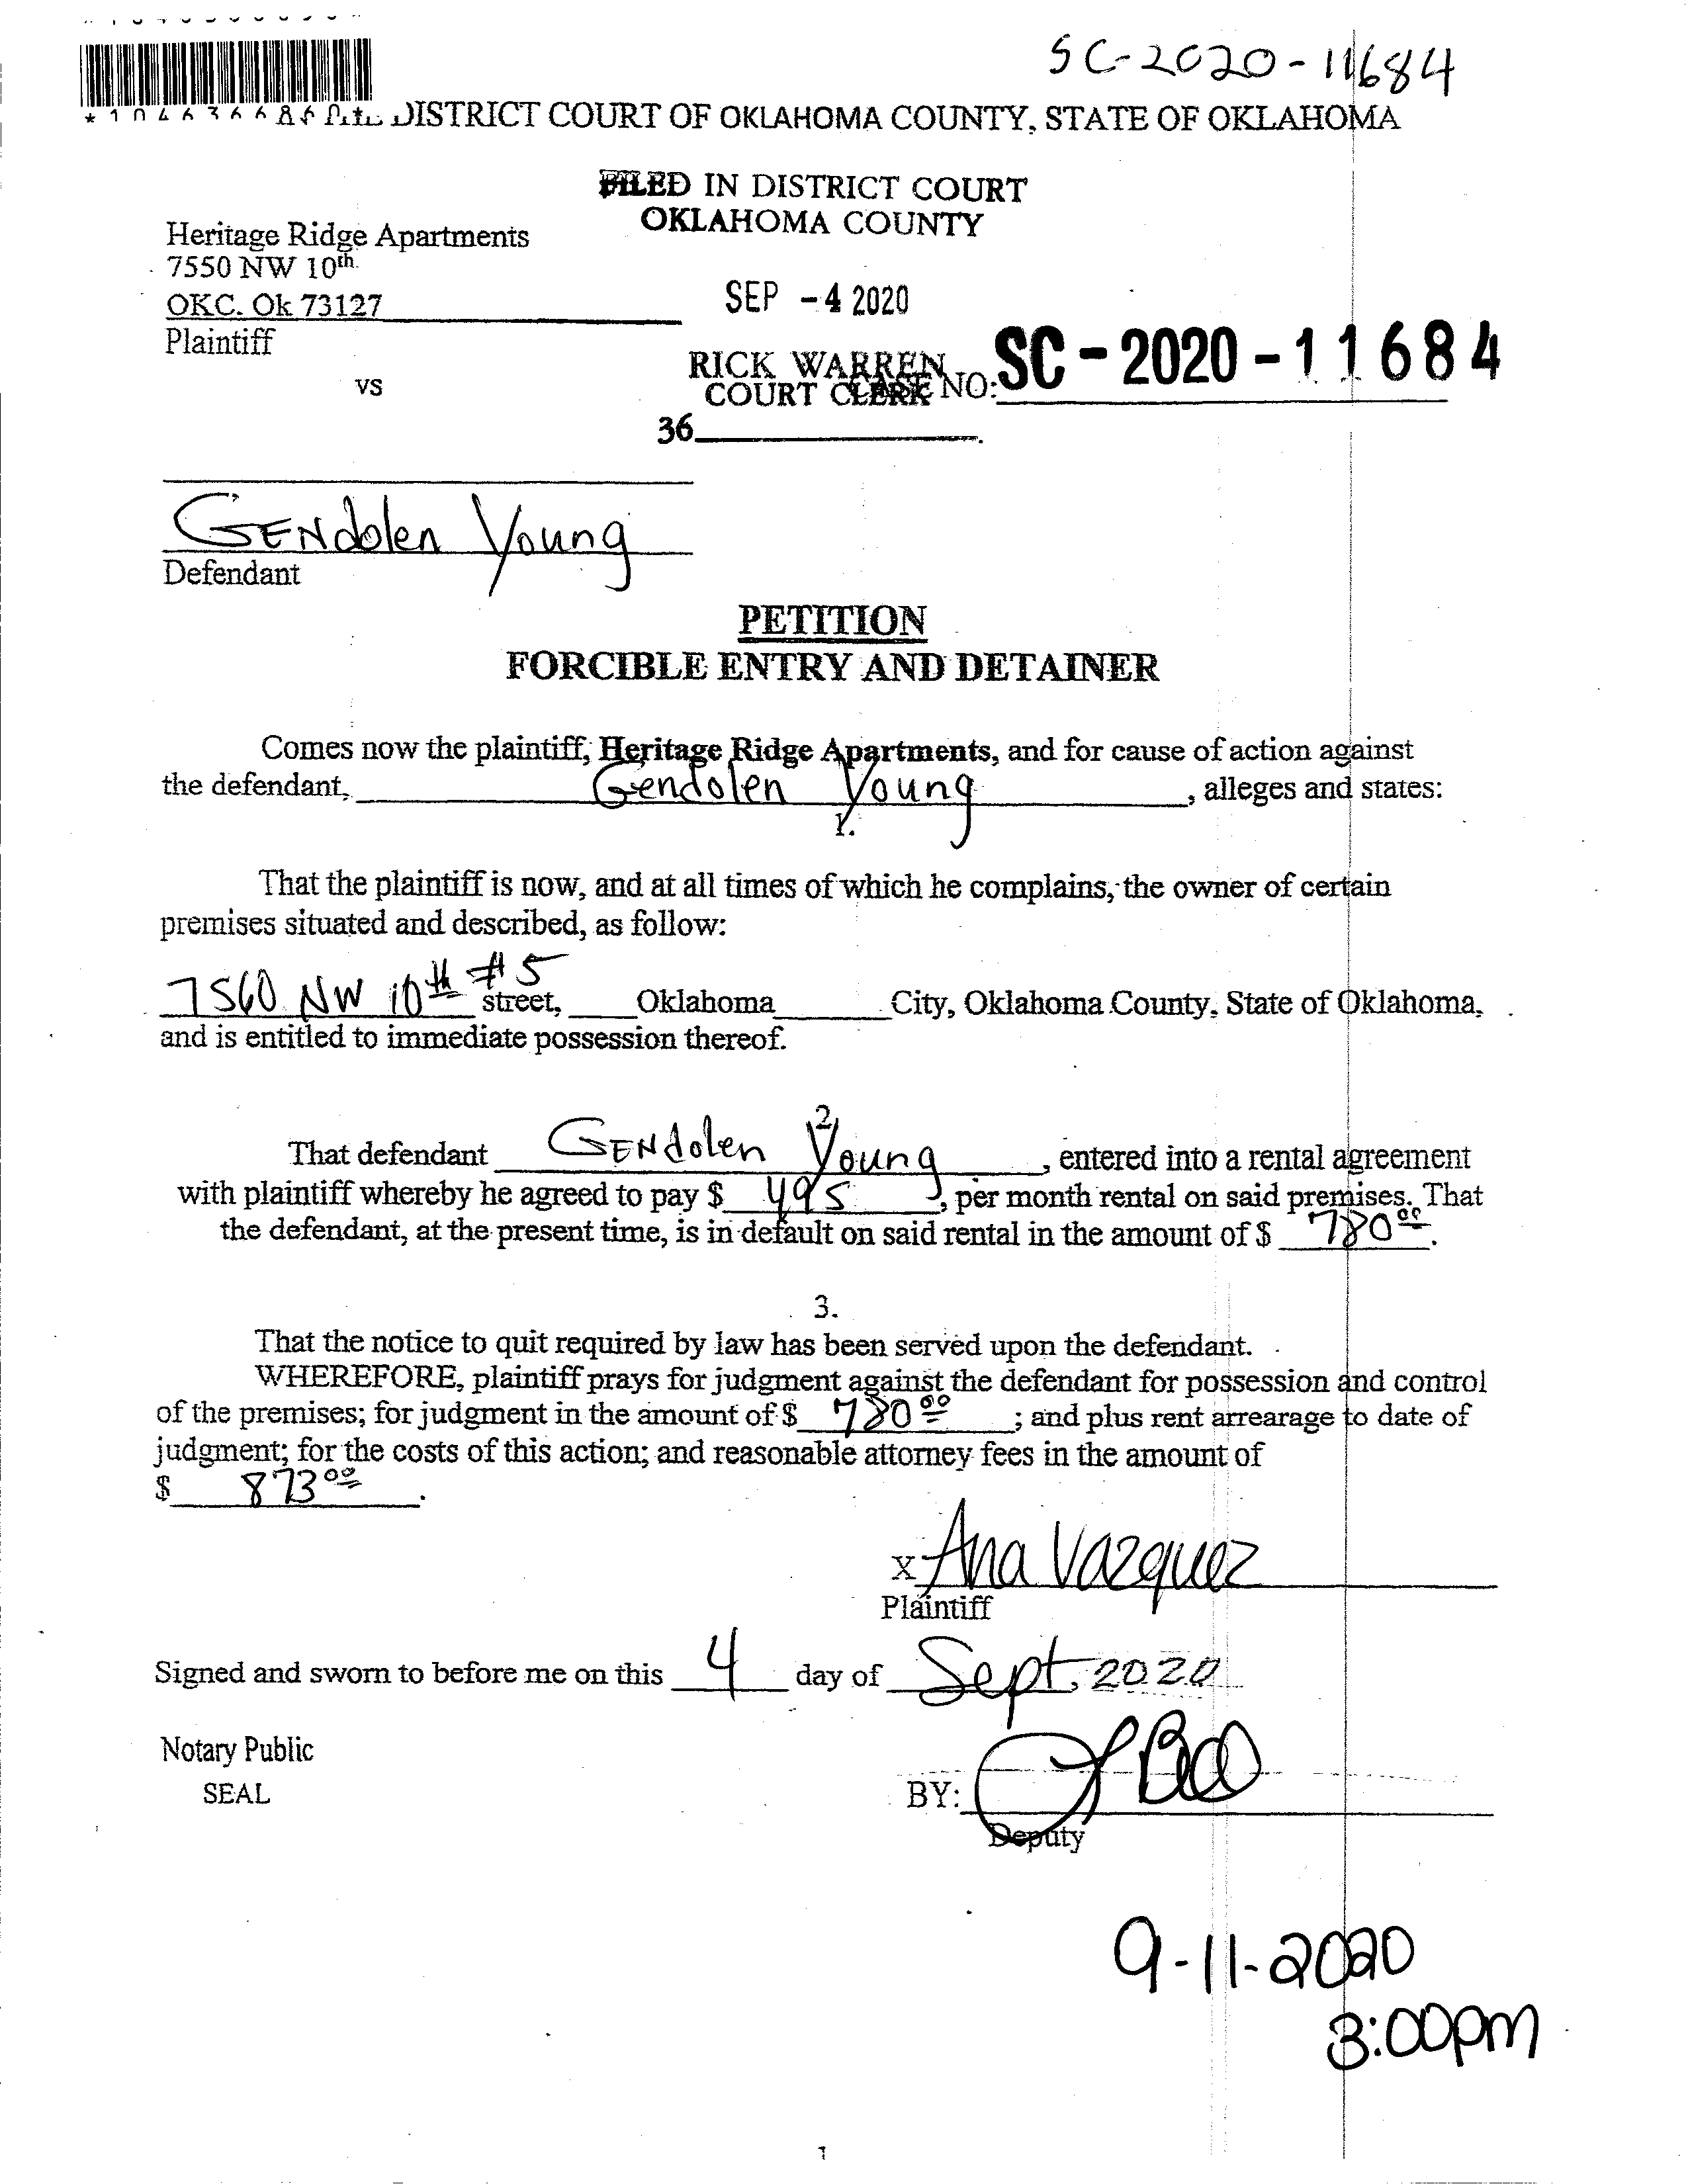 SC-2020-11684
DISTRICT COURT OF OKLAHOMA COUNTY, STATE OF OKLAHOMA
FILED IN DISTRICT COURT
OKLAHOMA COUNTY
Heritage Ridge Apartments
7550 NW 10th
OKC. Ok 73127
SEP - 4 2020
Plaintiff
vs
RICK WARREN
COURT CLERK
CASE NO: SC - 2020 - 11684
36
GENdolen Young
Defendant
PETITION
FORCIBLE ENTRY AND DETAINER
Comes now the plaintiff, Heritage Ridge Apartments, and for cause of action against
the defendant, Gendolen Young, alleges and states:
1.
That the plaintiff is now, and at all times of which he complains, the owner of certain
premises situated and described, as follow:
7560 NW 10th #5 street, Oklahoma City, Oklahoma County, State of Oklahoma,
and is entitled to immediate possession thereof.
2.
That defendant GENdolen Young, entered into a rental agreement
with plaintiff whereby he agreed to pay $ 495, per month rental on said premises. That
the defendant, at the present time, is in default on said rental in the amount of $ 780.00.
3.
That the notice to quit required by law has been served upon the defendant.
WHEREFORE, plaintiff prays for judgment against the defendant for possession and control
of the premises; for judgment in the amount of $ 780.00; and plus rent arrearage to date of
judgment; for the costs of this action; and reasonable attorney fees in the amount of
$ 873.00.
X Ana Vazquez
Plaintiff
Signed and sworn to before me on this 4 day of Sept, 2020
Notary Public
SEAL
BY:
Deputy
9-11-2020
3:00pm
1